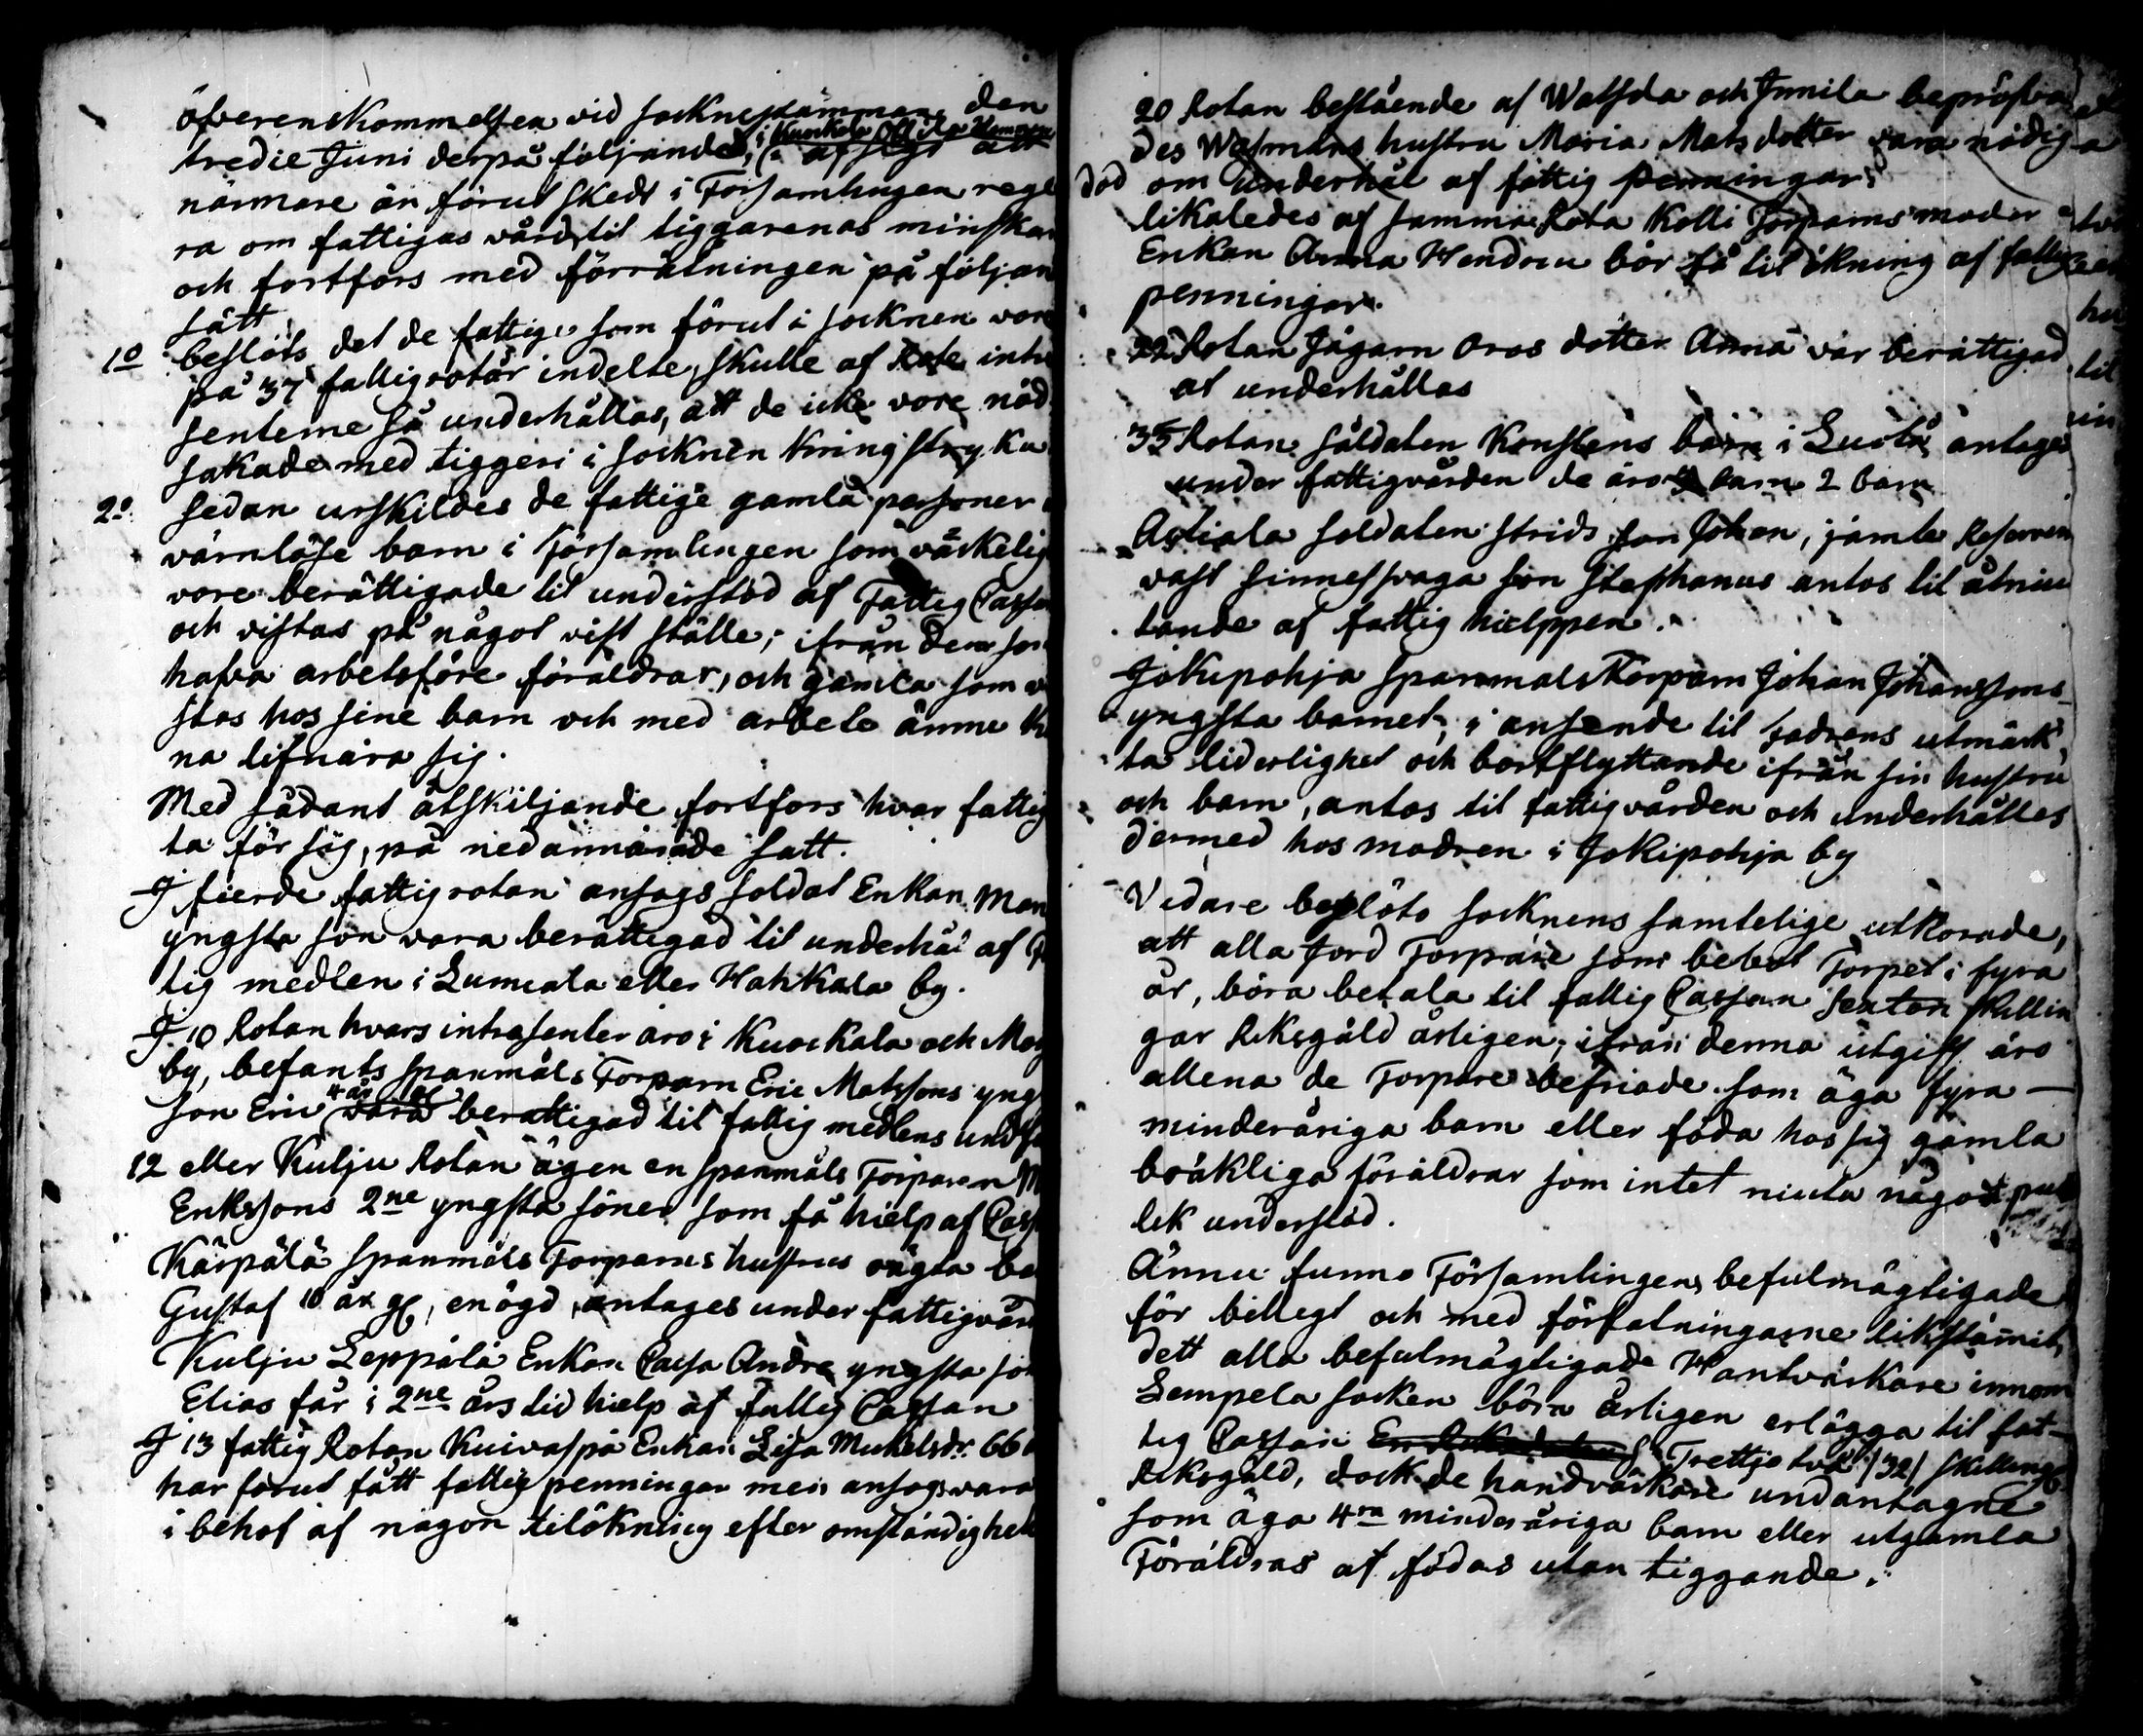 öfverenskommelsen vid socknestämman den
tredie Juni derpå följande, i Kuokala
närmare än förut skedt i Församlingen regle
ra om fattigas vård til tiggarenas minska
och fortfors med förrätningen på följan
sätt
1o beslöts det de fattige som förut i socknen vore
på 37 fattigrotar indelte, skulle af Rote intre
senterne så underhållas, att de icke vore nöd
sakade med tiggeri i socknen kringstryka
2o Sedan urskildes de fattige gamla personer
värnlöse barn i Församlingen som värkelig
vore berättigade til understöd af Fattig Cassa
och vistas på något visst ställe; ifrån dem som
hafva arbetsföre föräldrar, och gamla som vi
stas hos sine barn och med arbete ännu kun
na lifnära sig.
Med sådant åtskiljande fortfors hvar fattig
ta för sig, på nedannärade sätt.
I fierde fattigrotan ansågs soldat Enkan Man
yngsta son vara berättigad til underhål af Fa
tig medlen i Lumiala eller Hakkala by.
I 10 Rotan hvars intressenter äro i Kuokala och Mo
by, befants Spanmåls Torparn Eric Matssons yng
son Eric 4 år gl berättigad til fattig medlens undf
12 eller Kulju Rotan ägen en spanmåls Torparen M
Erikssons 2ne yngsta söner som få hielp af Cass
Kärpälä Spanmåls Torparns hustrus oägta ba
Gustaf 10 år gl, enögd, antages under fattigvård
Kulju Leppälä Enkan Caisa Andrs yngsta son
Elias får i 2ne års tid hielp af Fattig Cassan
I 13 fattig Rotan Kuivaspä Enkan Lisa Mickelsdr. 66
har förut fått fattig penningar men ansogs vara
i behof af någon tilökning efter omständighet
20 Rotan bestående af och Innila bepröfva
des hustru Maria Mats dotter vara nödig
död om underhål af fattig penningar,
likaledes af samma Rota Kolli Torparns moder
Enkan Anna Hendrsu bör få til ökning af fattig
penningar.
22 Rotan Jägarn Oros dotter Anna var berättigad
at underhållas
35 Rotan Soldaten Konstens barn i antages
under fattigvården de äro 2 barn
Astiala soldaten Strids son Johan, jämte Reserven
vast sinnessvaga son Stephanus antos til åtniu
tande af fattig hielppen.
Jokipohja Spanmåls Torparn Johan Johanssons
yngsta barnet, i anseende til Fadrens utmärk
ta liderlighet och bortflyttande ifrån sin hustru
och barn, antos til fattigvården och underhålles
dermed hos modren i Jokipohja by
Vidare beslöto socknens samtelige utkorade,
att alla Jord Torpare som bebot Torpet i fyra
år, böra betala til fattig Cassan sexton skillin
gar Riksgäld årligen, ifrån denna utgift äro
allena de Torpare befriade som äga fyra —
minderåriga barn eller föda hos sig gamla
bräkliga föräldrar som intet niuta något pub
lik understöd.
Ännu funno Församlingens befulmägtigade
för billegt och med författningarne likstämit,
dett alla befulmägtigade Hantvärkare innom
Lempela socken böra årligen erlägga til fat-
tig Cassan Trettio två /32/ skillingr
Riksgäld, dock de handvärkare undantagne
som äga 4ra minderåriga barn eller utgamla
Föräldrar at födas utan tiggande.